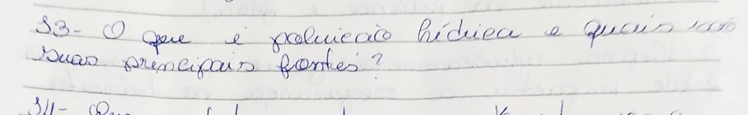 53- O que é poluição hídrica e quais são
suas principais fontes?
54-